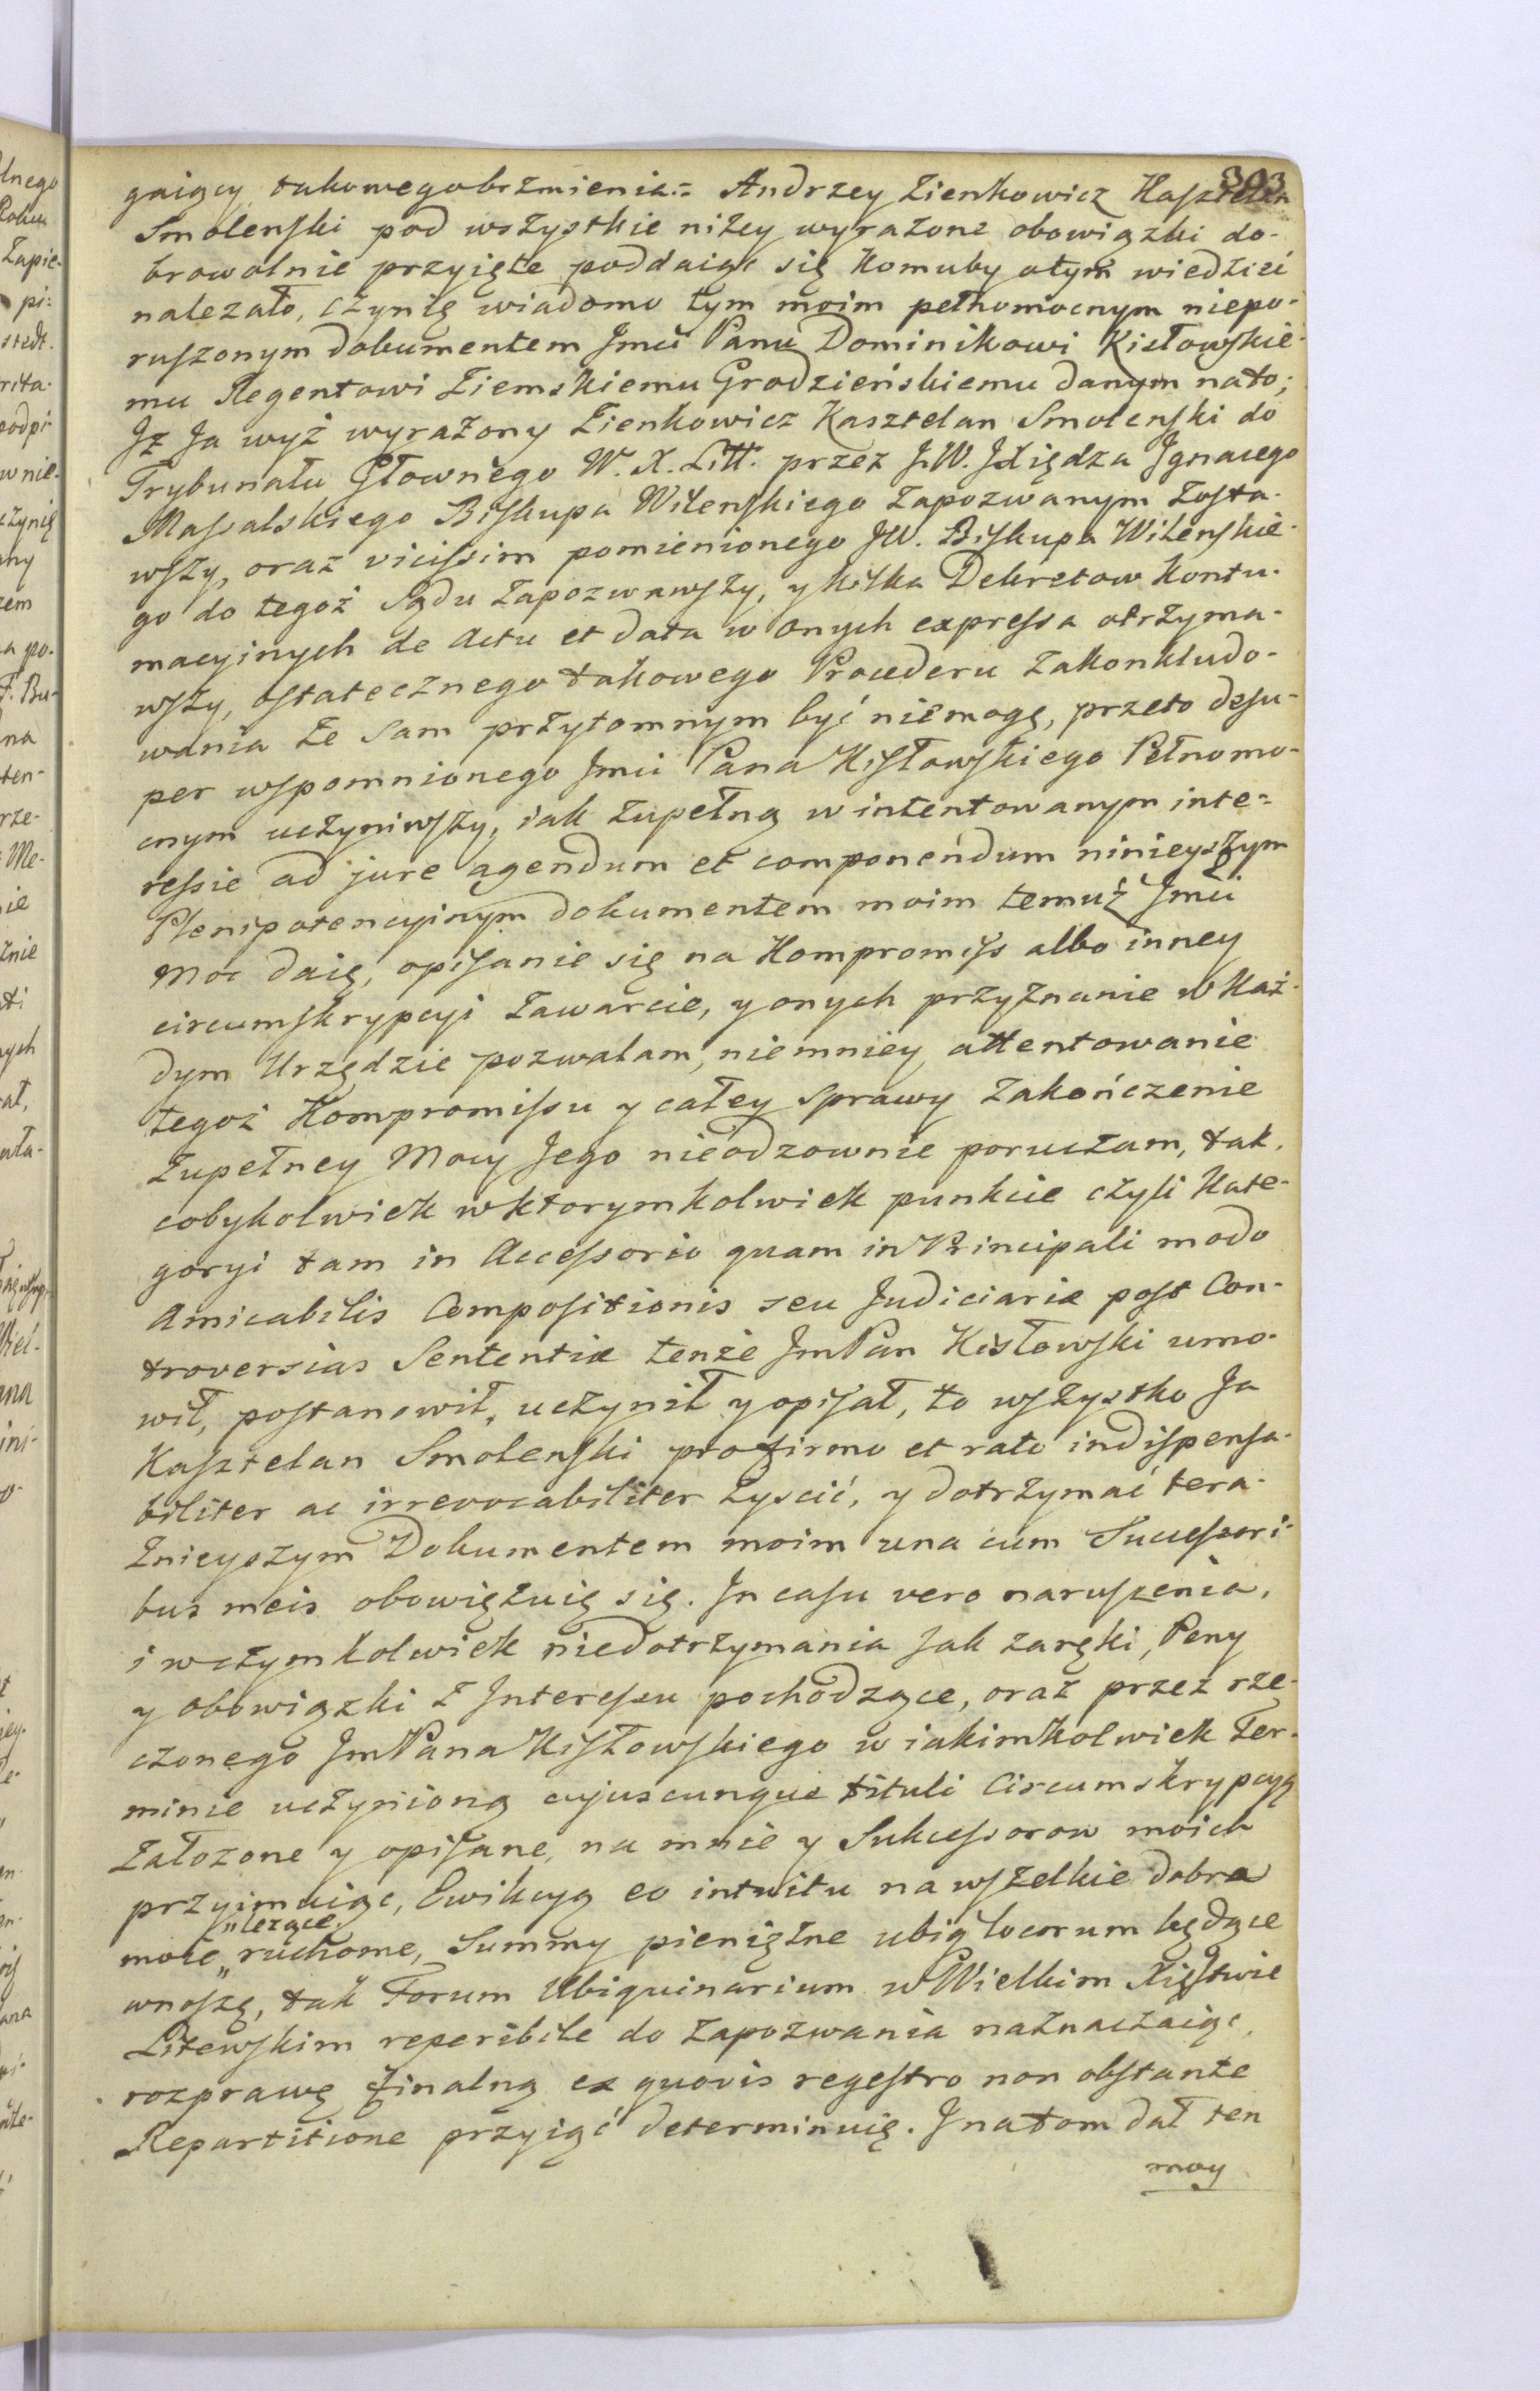 303
gaiący takowego brzmienia:= Andrzey Zienkowicz Kasztelan
Smolenski pod wszystkie niżey wyrażone obowiązki do-
browolnie przyięte poddaiąc się Komuby otym wiedzieć
należało, czynię wiadomo tym moim pełnomocnym niepo-
ruszonym dokumentem Jmći Panu Dominikowi Kisłowskie-
mu Regentowi Ziemskiemu Grodzieńskiemu danym na to;
Iż Ja wyż wyrażony Zienkowicz Kasztelan Smolenski do
Trybunału Głownego W. X. Litt. przez J.W. JXiędza Jgnacego
Massalskiego Biskupa Wilenskiego zapozwanym zosta-
wszy, oraz vicissim pomienionego JW. Biskupa Wilenskie-
go do tegoż Sądu zapozwawszy, y kilka Dekretow Kontu-
macyinych de Actu et data w onych expressa otrzyma-
wszy, ostatecznego takowego Procederu zakonkludo-
wania że sam przytomnym być niemogę, przeto desu-
per wspomnionego Jmći Pana Kisłowskiego Pełnomo-
cnym uczyniwszy, iak zupełną w intentowanym inte-
ressie ad jure agendum et componendum ninieyszym
Plenipotencyinym dokumentem moim temuż Jmći
Moc daię, opisanie się na Kompromiss albo inney
circumskrypcyi zawarcie, y onych przyznanie w Każ-
dym Urzędzie pozwalam, niemniey attentowanie
tegoż Kompromissu y całey sprawy zakończenie
zupełney Mocy Jego nieodzownie poruczam, tak,
cobykolwiek w ktorymkolwiek punkcie czyli Kate-
goryi tam in Accessorio quam in Principali modo
Amicabilis Compositionis seu Judiciariæ post Con-
troversias Sententiæ tenże JmPan Kisłowski umo-
wił, postanowił, uczynił y opisał, to wszystko Ja
Kasztelan Smolenski pro firmo et rato indispensa-
biliter ac irrevocabiliter zyscić, y dotrzymać tera-
znieyszym Dokumentem moim una cum Successori-
bus meis obowięzuię się. In casu vero naruszenia,
i wczymkolwiek niedotrzymania Jak zaręki, Peny
y obowiązki z Interessu pochodzące, oraz przez rze-
czonego JmPana Kisłowskiego w iakimkolwiek Ter-
minie uczynioną cujuscunque tituli Circumskrypcyą
założone y opisane, na mnie y Sukcessorow moich
przyimuiąc, Ewikcyą eo intuitu na wszelkie dobra
"leżące
moie "ruchome, Summy pieniężne ubiq locorum będące
wnoszę, tak Forum Ubiquinarium w Wielkim Xięstwie
Litewskim reperibile do zapozwania naznaczaiąc,
rozprawę finalną ex quovis regestro non obstante
Repartitione przyiąć determinuię. I na tom dał ten
moy